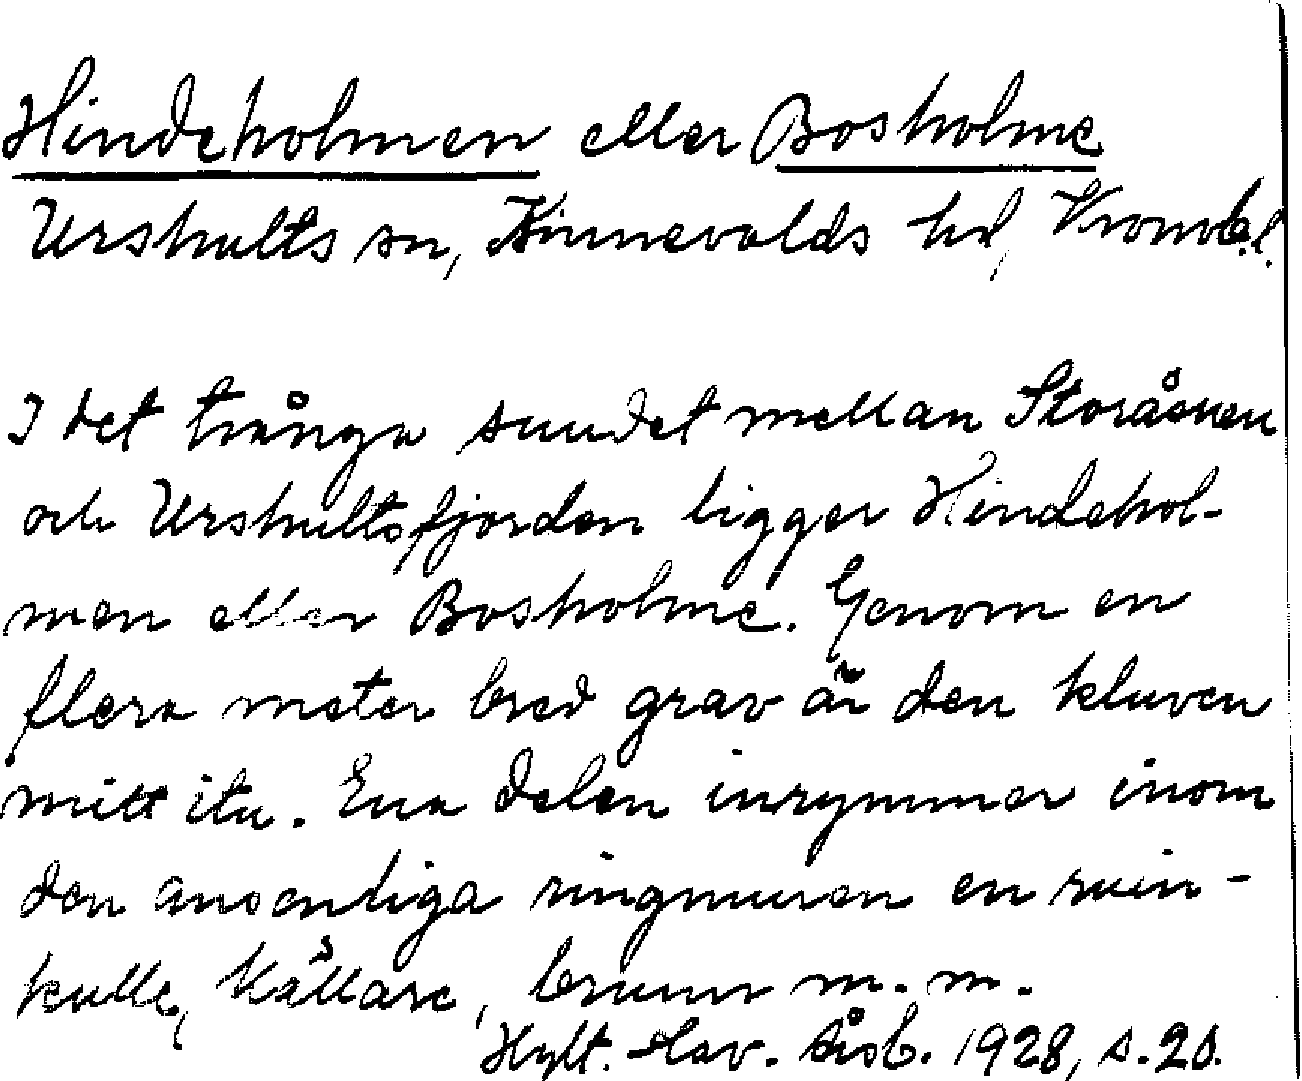 Hindeholmen eller Bosholme
Urshults sn, Kinnevalds hd, Kronob. l.
I det trånga sundet mellan Storåsnen
och Urshultsfjorden ligger Hindehol-
men eller Bosholme. Genom en
flera meter bred grav är den kluven
mitt itu. Ena delen inrymmer inom
den ansenliga ringmuren en ruin-
kulle, källare, brunn m. m.
Hylt.-Cav. årsb. 1928, s. 20.